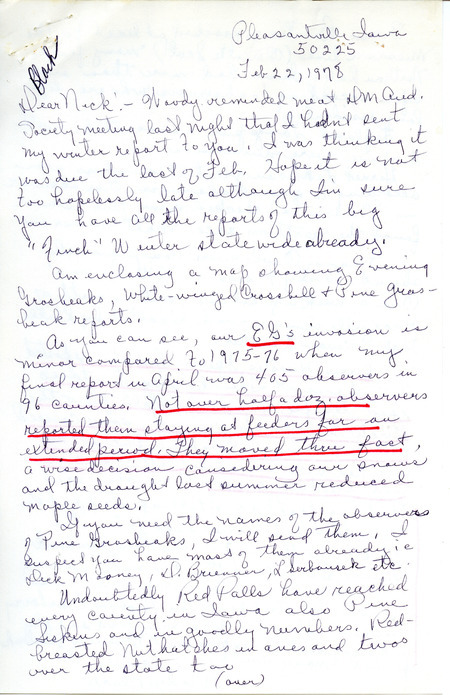 Black
Pleasantville, Iowa
50225
Feb 22, 1978
Dear Nick! - Woody reminded me at DM Aud.
Society meeting last night that I hadn't sent
my winter report to you. I was thinking it
was due the last of Feb. Hope it is not
too hopelessly late although I'm sure
you have all the reports of this big
"Finch" Winter statewide already.
Am enclosing a map showing Evening
Grosbeaks, White-winged Crossbill & Pine Gros-
beak reports.
As you can see, our EG's invasion is
minor compared to 1975-76 when my
final report in April was 405 observers in
96 counties. Not over half a doz. observers
reported them staying at feeders for an
extended period. They moved thru fast,
a wise decision considering our snows
and the drought last summer reduced
maple seeds.
If you need the names of the observers
of Pine Grosbeaks, I will send them, I
suspect you have most of them already i.e
Dick Mooney, D. Bruenner, L Serbousek etc.
Undoubtedly Red Palls have reached
every county in Iowa also Pine
Siskins and in goodly numbers. Red-
breasted Nuthatches in ones and twos
over the state too
(over)